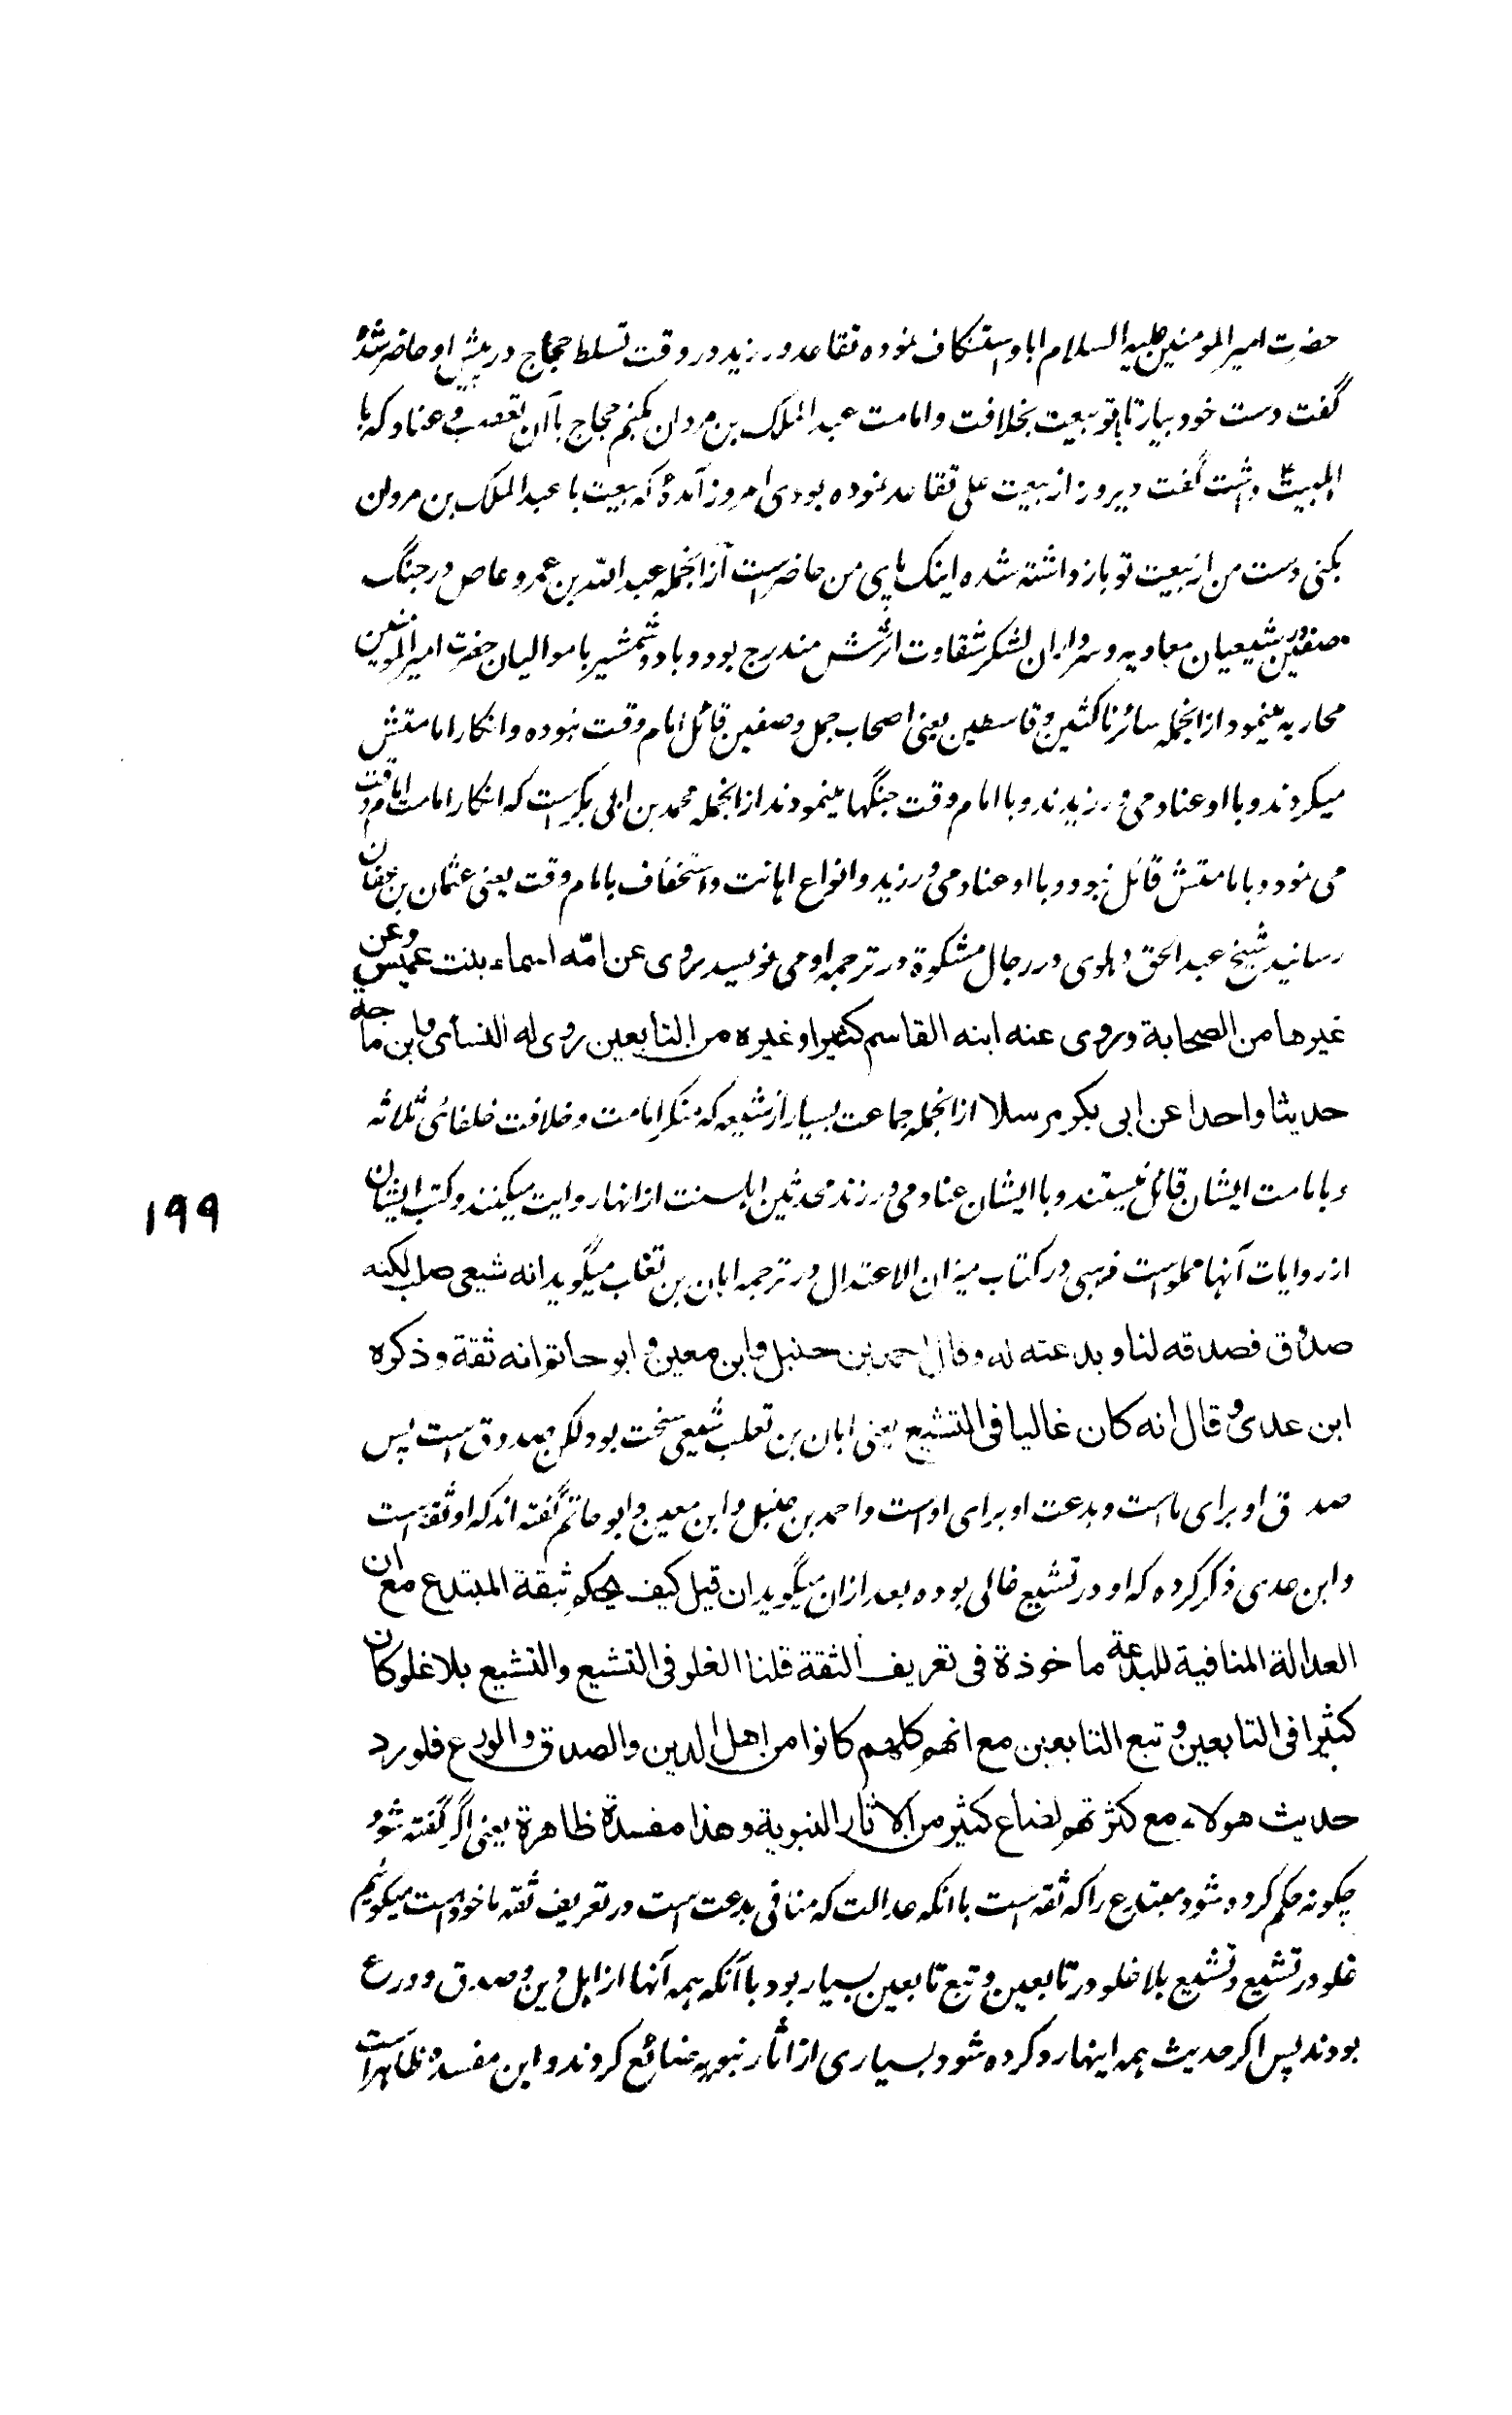 حضرت امیر المومنین علیه السلام ابا و استنکاف نموده تقاعد ورزید در وقت تسلط حجاج در پیش او حاضر شده
گفت دست خود بیار تا با تو بیعت بخلافت و امامت عبد الملک بن مروان بکنم حجاج با آن تعصب و عناد که با
اهلبیت داشت گفت دیروز از بیعت علی تقاعد نموده بودی امروز آمدۀ که بیعت با عبد الملک بن مروان
بکنی دست من از بیعت تو باز داشته شده اینک پای من حاضر است ازانجمله عبد الله بن عمرو عاص در جنگ
صفین در شیعیان معاویه و سرداران لشکر شقاوت اثرش مندرج بود و با دو شمشیر با موالیان حضرت امیر المومنین
محاربه مینمود ازانجمله سائر ناکثین و قاسطین یعنی اصحاب جمل و صفین قائل امام وقت نبوده و انکار امامتش
میکردند و با او عناد می ورزیدند و با امام وقت جنگها مینمودند ازانجمله محمد بن ابی بکر است که انکار امامت امام وقت
می نمود و بامامتش قائل نبود و با او عناد می ورزید و انواع اهانت و استخفاف بامام وقت یعنی عثمان بن عفان
رسانید شیخ عبد الحق دهلوی در رجال مشکوة در ترجمه او می نویسد روی عن امّه اسماء بنت عمیس وعن
غیرها من الصحابة وروی عنه ابنه القاسم کثیرا وغیره من التابعین روی له النسأی وابن ماجه
حدیثا واحدا عن ابی بکر مرسلا ازانجمله جماعت بسیار از شیعه که منکر امامت و خلافت خلفائ ثلاثه
و بامامت ایشان قائل نیستند و با ایشان عناد می ورزند محدثین اهلسنت ازانها روایت میکنند و کتب ایشان
از روایات آنها مملوست ذهبی در کتاب میزان الاعتدال در ترجمه ابان بن تغلب میگوید انه شیعی صلب لکنه
صدوق فصدقه لنا و بدعته له وقال احمد بن حنبل وابن معین و ابو حاتم انه ثقة وذکره
ابن عدی و قال انه کان غالیا فی التشیع یعنی ابان بن تعلب شیعی سخت بود لکن صدوق است پس
صدق او برای ماست و بدعت او برای اوست و احمد بن حنبل و ابن معین و ابو حاتم گفته اند که او ثقه است
و ابن عدی ذکر کرده که او در تشیع غالی بوده بعد ازان میگوید ان قیل کیف یحکم بثقة المبتدع مع ان
العدالة المنافیة للبدعة ماخوذة فی تعریف الثقة قلنا الغلو فی التشیع والتشیع بلا غلو کان
کثیرا فی التابعین و تبع التابعین مع انهم کلهم کانوا من اهل الدین والصدق والورع فلو رد
حدیث هولاء مع کثرتهم لضاع کثیر من الاثار النبویة وهذا مفسدة ظاهرة یعنی اگر گفته شود
چگونه حکم کرده شود مبتدع را که ثقه است با انکه عدالت که منافی بدعت است در تعریف ثقه ماخوذ است میگوئیم
غلو در تشیع و تشیع بلا غلو در تابعین و تبع تابعین بسیار بود با آنکه همه آنها از اهل دین و صدق و ورع
بودند پس اگر حدیث همه اینها رد کرده شود بسیاری از اثار نبویه ضائع گردند و این مفسدۀ ظاهر است
۱۹۹